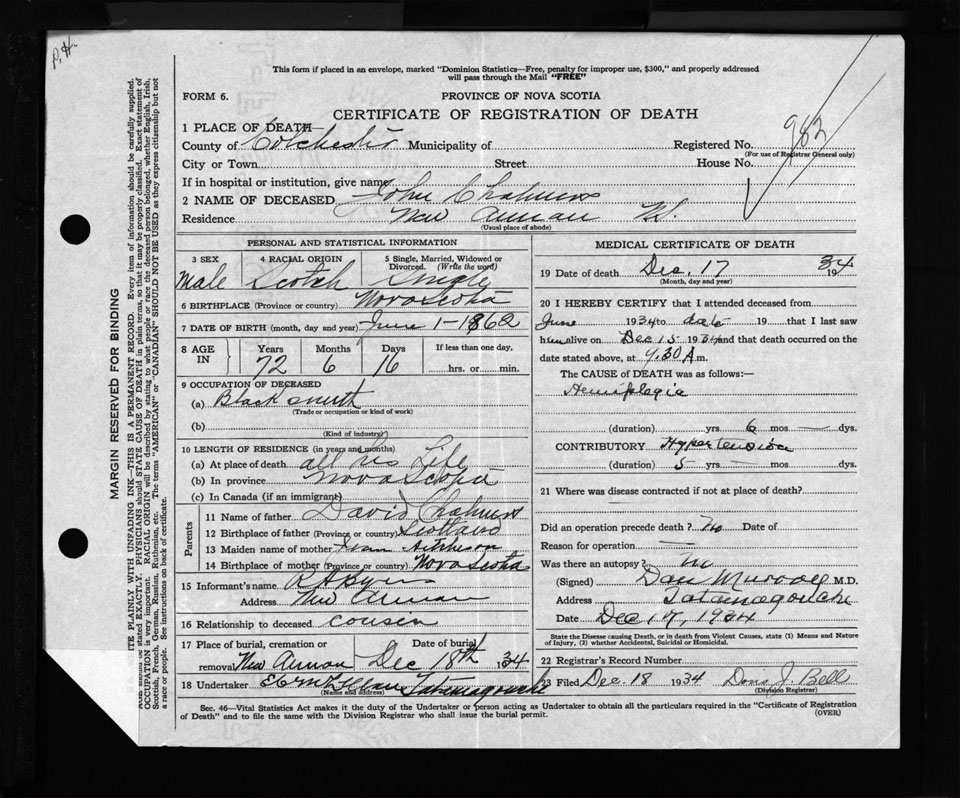 P.H.
This form if placed in an envelope, marked "Dominion Statistics—Free, penalty for improper use, $300," and properly addressed
will pass through the Mail "FREE"
FORM 6.
PROVINCE OF NOVA SCOTIA
CERTIFICATE OF REGISTRATION OF DEATH
1 PLACE OF DEATH—
County of Colchester Municipality of Registered No. 983
(For use of Registrar General only)
City or Town Street House No.
If in hospital or institution, give name
2 NAME OF DECEASED John Chalmers
Residence New Annan N.S.
(Usual place of abode)
PERSONAL AND STATISTICAL INFORMATION
3 SEX 4 RACIAL ORIGIN 5 Single, Married, Widowed or
Divorced. (Write the word)
Male Scotch Single
6 BIRTHPLACE (Province or country) Nova Scotia
7 DATE OF BIRTH (month, day and year) June 1-1862
8 AGE IN Years Months Days If less than one day.
72 6 16 hrs. or min.
9 OCCUPATION OF DECEASED
(a) Blacksmith
(Trade or occupation or kind of work)
(b)
(Kind of industry)
10 LENGTH OF RESIDENCE (in years and months)
(a) At place of death all his Life
(b) In province Nova Scotia
(c) In Canada (if an immigrant)
Parents
11 Name of father David Chalmers
12 Birthplace of father (Province or country) Scotland
13 Maiden name of mother Jean Aitcheson
14 Birthplace of mother (Province or country) Nova Scotia
15 Informant's name R A Byers
Address New Annan
16 Relationship to deceased cousen
17 Place of burial, cremation or Date of burial
removal New Annan Dec 18th 1934
18 Undertaker Tatamagouche
(Name and address)
MEDICAL CERTIFICATE OF DEATH
19 Date of death Dec. 17 1934
(Month, day and year)
20 I HEREBY CERTIFY that I attended deceased from
June 1934 to date 19 that I last saw
him alive on Dec 15 1934 and that death occurred on the
date stated above, at 9.30 A.m.
The CAUSE OF DEATH was as follows:—
Hemiplegia
(duration) yrs. 6 mos. — dys.
CONTRIBUTORY Hypertension
(duration) 5 yrs. — mos. dys.
21 Where was disease contracted if not at place of death? —
Did an operation precede death? No Date of
Reason for operation —
Was there an autopsy? No
(Signed) Dan Murray M.D.
Address Tatamagouche
Date Dec 17, 1934
State the Disease causing Death, or in death from Violent Causes, state (1) Means and Nature
of Injury, (2) whether Accidental, Suicidal or Homicidal.
22 Registrar's Record Number
23 Filed Dec. 18 1934 J. Bell
(Division Registrar)
Sec. 46—Vital Statistics Act makes it the duty of the Undertaker or person acting as Undertaker to obtain all the particulars required in the "Certificate of Registration
of Death" and to file the same with the Division Registrar who shall issue the burial permit.
(OVER)
MARGIN RESERVED FOR BINDING
ITE PLAINLY WITH UNFADING INK—THIS IS A PERMANENT RECORD. Every item of information should be carefully supplied.
AGE should be stated EXACTLY. PHYSICIANS should STATE CAUSE OF DEATH in plain terms, so that it may be properly classified. Exact statement of
OCCUPATION is very important. RACIAL ORIGIN will be described by stating to what people or race the deceased person belonged, whether English, Irish,
Scottish, French, German, Russian, Ruthenian, etc. The terms "AMERICAN" or "CANADIAN" SHOULD NOT BE USED as they express citizenship but not
a race or people. See instructions on back of certificate.